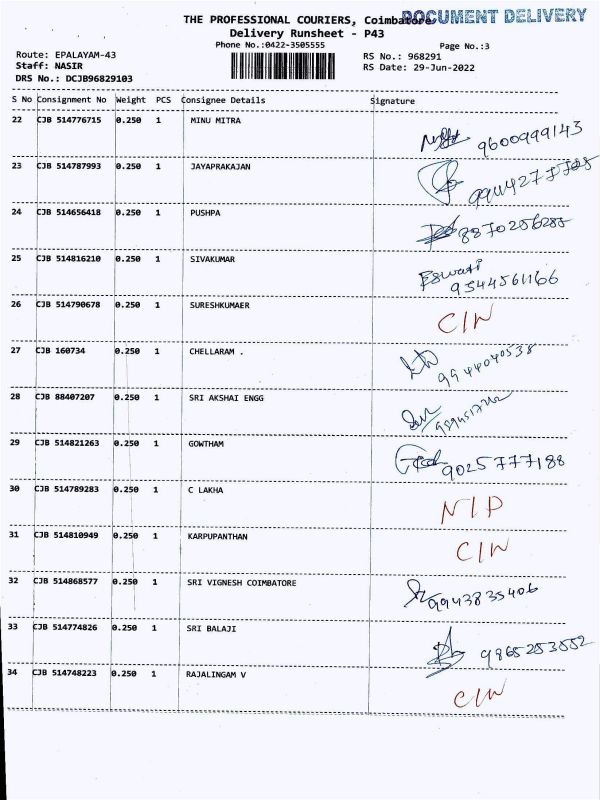 THE PROFESSIONAL COURIERS, Coimbatore
DOCUMENT DELIVERY
Delivery Runsheet - P43
Phone No.:0422-3505555
Page No.:3
Route: EPALAYAM-43
RS No.: 968291
Staff: NASIR
RS Date: 29-Jun-2022
DRS No.: DCJB96829103
S No Consignment No Weight PCS Consignee Details Signature
22 CJB 514776715 0.250 1 MINU MITRA
9600999143
23 CJB 514787993 0.250 1 JAYAPRAKAJAN
24 CJB 514656418 0.250 1 PUSHPA
25 CJB 514816210 0.250 1 SIVAKUMAR
Eswari
9344561166
26 CJB 514790678 0.250 1 SURESHKUMAER
C/N
27 CJB 160734 0.250 1 CHELLARAM .
9944040538
28 CJB 88407207 0.250 1 SRI AKSHAI ENGG
29 CJB 514821263 0.250 1 GOWTHAM
9025777188
30 CJB 514789283 0.250 1 C LAKHA
N/P
31 CJB 514810949 0.250 1 KARPUPANTHAN
C/N
32 CJB 514868577 0.250 1 SRI VIGNESH COIMBATORE
9943835406
33 CJB 514774826 0.250 1 SRI BALAJI
9865253552
34 CJB 514748223 0.250 1 RAJALINGAM V
C/N